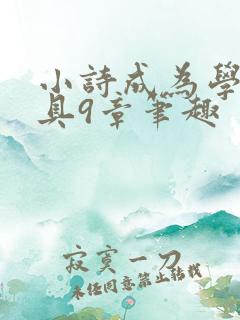 小詩成為學
具9章筆趣
寂寞一刀
未经同意禁止转载